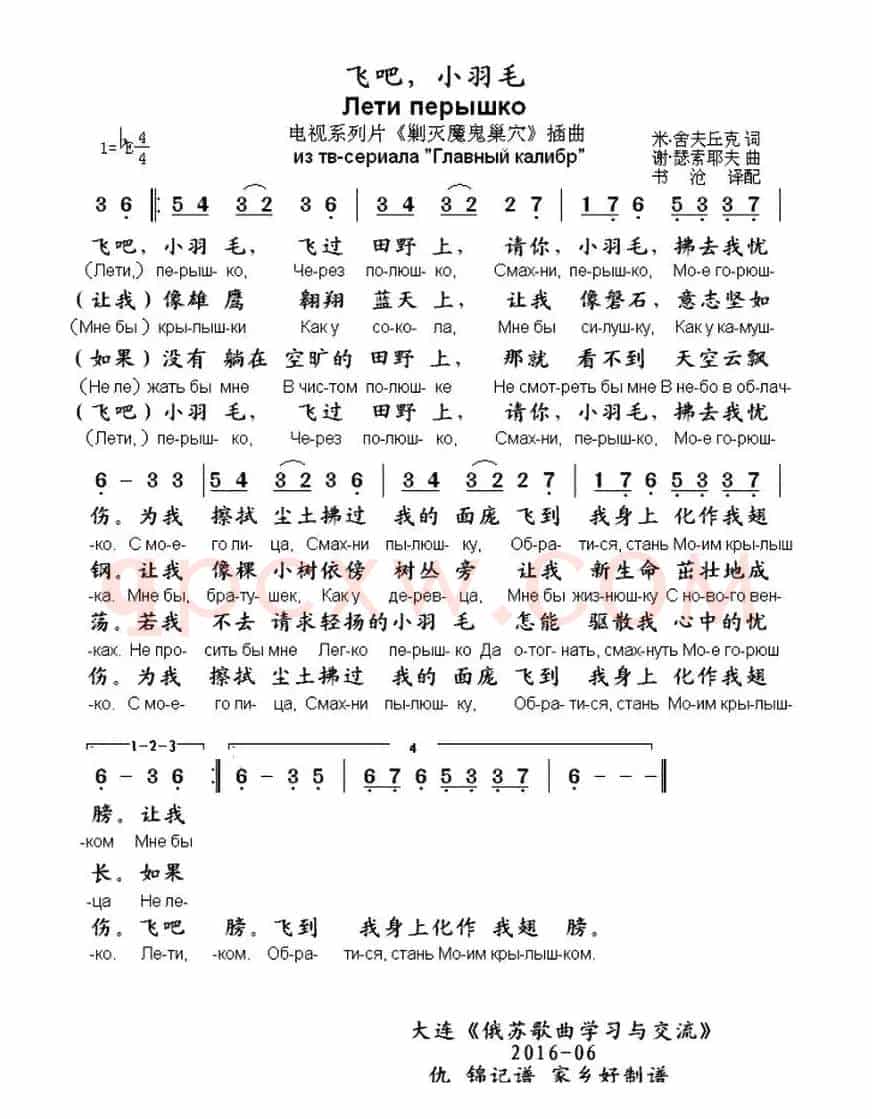 飞吧，小羽毛
Лети перышко
电视系列片《剿灭魔鬼巢穴》插曲
из тв-сериала "Главный калибр"
米·舍夫丘克 词
谢·瑟索耶夫 曲
书 沧 译配
1=♭E 4/4
3 6 ‖: 5 4 3 2 3 6 | 3 4 3 2 2 7 | 1 7 6 5 3 3 7 |
飞吧，小羽 毛， 飞过 田野 上， 请你，小羽毛，拂去我忧
(Лети,) пе-рыш- ко, Че-рез по-люш-ко, Смах-ни, пе-рыш-ко, Мо-е го-рюш-
（让我）像雄 鹰 翱翔 蓝天 上， 让我 像磐石，意志坚如
(Мне бы) кры-лыш-ки Как у со-ко- ла, Мне бы си-луш-ку, Как у ка-муш-
（如果）没有 躺在 空旷的 田野 上， 那就 看不到 天空云飘
(Не ле) жать бы мне В чис-том по-люш- ке Не смот-реть бы мне В не-бо в об-лач-
（飞吧）小羽 毛， 飞过 田野 上， 请你，小羽毛，拂去我忧
(Лети,) пе-рыш- ко, Че-рез по-люш-ко, Смах-ни, пе-рыш-ко, Мо-е го-рюш-
6 - 3 3 | 5 4 3 2 3 6 | 3 4 3 2 2 7 | 1 7 6 5 3 3 7 |
伤。为我 擦拭 尘土拂过 我的 面庞 飞到 我身上 化作我翅
-ко. С мо-е- го ли- ца, Смах-ни пы-люш- ку, Об-ра- ти-ся, стань Мо-им кры-лыш
钢。让我 像棵 小树依傍 树丛 旁 让我 新生命 茁壮地成
-ка. Мне бы, бра-ту- шек, Как у де-рев- ца, Мне бы жиз-нюш-ку С но-во-го вен-
荡。若我 不去 请求轻扬的小羽 毛 怎能 驱散我 心中的忧
-ках. Не про- сить бы мне Лег-ко пе-рыш- ко Да о-тог- нать, смах-нуть Мо-е го-рюш
伤。为我 擦拭 尘土拂过 我的 面庞 飞到 我身上 化作我翅
-ко. С мо-е- го ли- ца, Смах-ни пы-люш- ку, Об-ра- ти-ся, стань Мо-им кры-лыш-
1-2-3 4
6 - 3 6 :‖ 6 - 3 5 | 6 7 6 5 3 3 7 | 6 - - - ‖
膀。让我
-ком Мне бы
长。如果
-ца Не ле-
伤。飞吧 膀。飞到 我身上化作 我翅 膀。
-ко. Ле-ти, -ком. Об-ра- ти-ся, стань Мо-им кры-лыш-ком.
qpcxw.COM
大连《俄苏歌曲学习与交流》
2016-06
仇 锦记谱 家乡好制谱